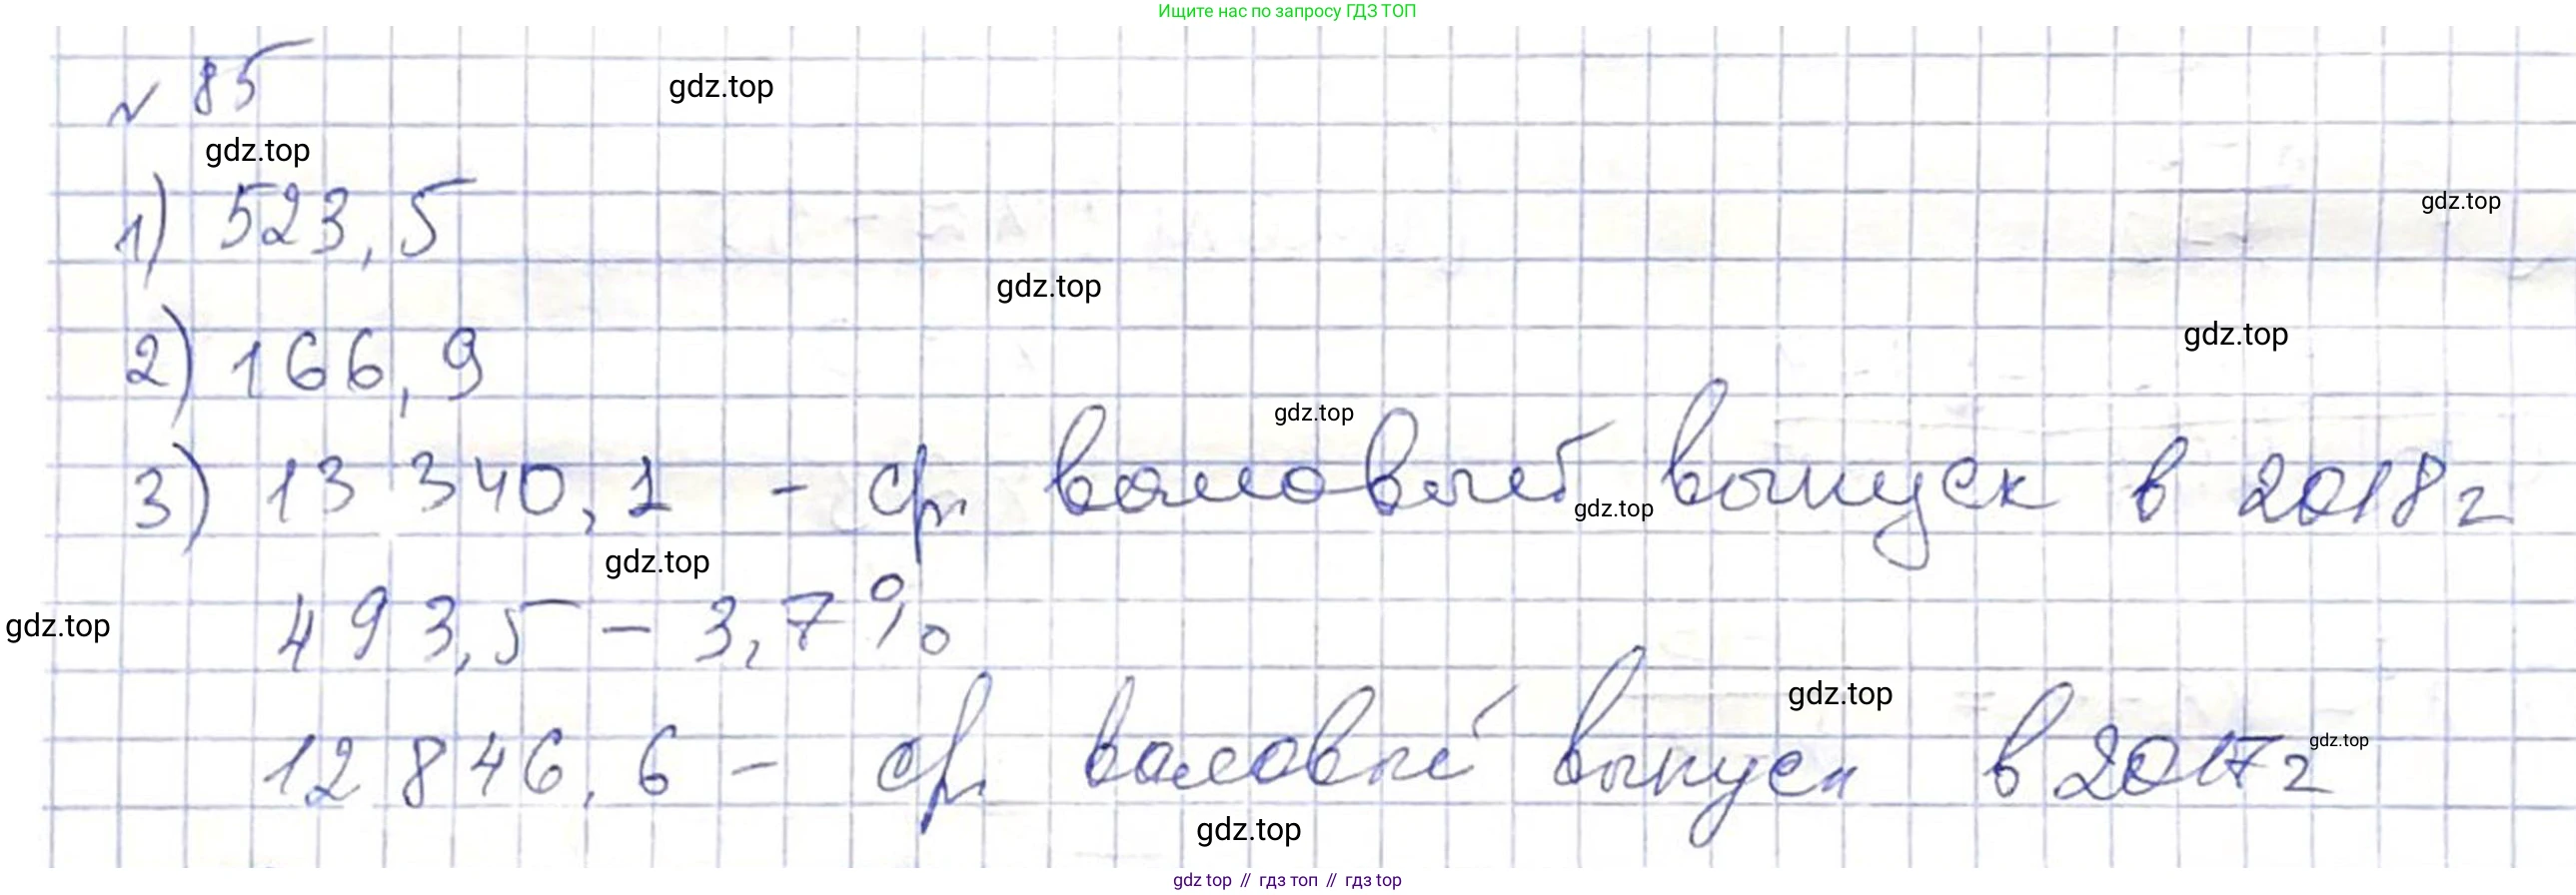 Ищите нас по запросу ГДЗ ТОП
№ 85
gdz.top
gdz.top
1) 523,5
gdz.top
gdz.top
2) 166,9
gdz.top
gdz.top
3) 13 340,1 - ср валовый выпуск в 2018г
gdz.top
gdz.top
493,5 – 3,7%
gdz.top
gdz.top
12 846,6 – ср валовый выпуск в 2017г
gdz.top
gdz.top
gdz top // гдз топ // гдз top